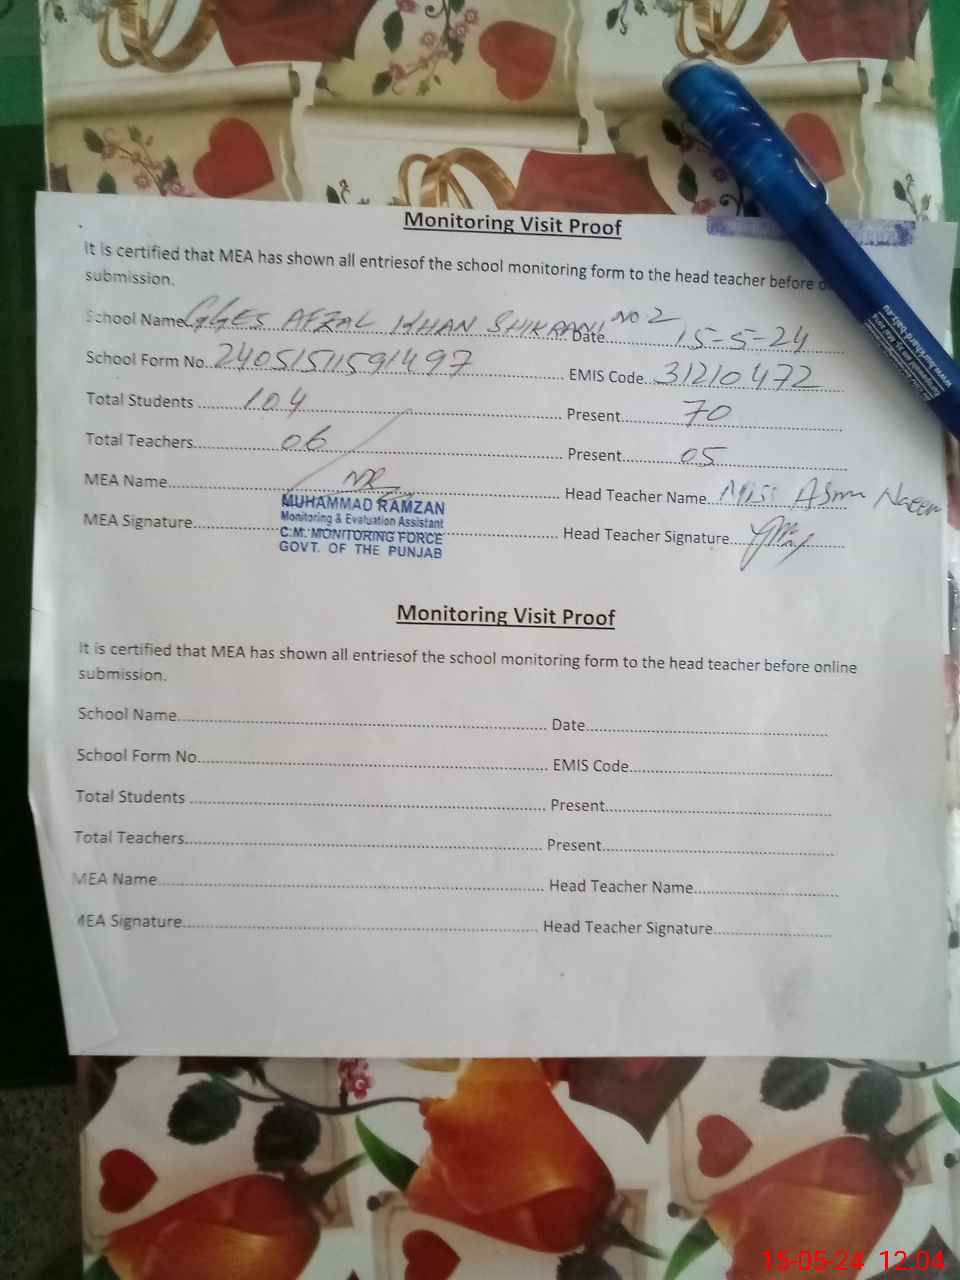 Monitoring Visit Proof
It is certified that MEA has shown all entriesof the school monitoring form to the head teacher before
submission.
School Name GGES AFZAL KHAN SHIKRANI NO 2 Date 15-5-24
School Form No. 24051511591497 EMIS Code 31210472
Total Students 104 Present 70
Total Teachers 06 Present 05
MEA Name Head Teacher Name Miss Asma Naeem
MUHAMMAD RAMZAN
Monitoring & Evaluation Assistant
MEA Signature Head Teacher Signature
C.M. MONITORING FORCE
GOVT. OF THE PUNJAB
Monitoring Visit Proof
It is certified that MEA has shown all entriesof the school monitoring form to the head teacher before online
submission.
School Name Date
School Form No. EMIS Code
Total Students Present
Total Teachers Present
MEA Name Head Teacher Name
MEA Signature Head Teacher Signature
15-05-24 12:04